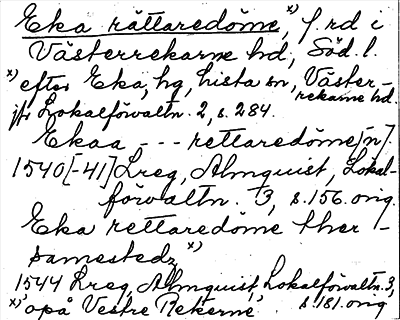 Eka rättaredöme,x) f.rd i
Västerrekarne hd, Söd. l.
x) efter Eka, hg, Lista sn, Väster-
rekarne hd.
jfr Lokalförvaltn. 2, s. 284.
Ekaa - - - rettaredöme[n].
1540[-41] Lreg, Almquist, Lokal-
förvaltn. 3, s. 156. orig.
Eka rettaredöme ther -
samestedz x)
1544 Lreg, Almquist, Lokalförvaltn. 3,
s. 181. orig
x) 'opå Vestre Rekerne'